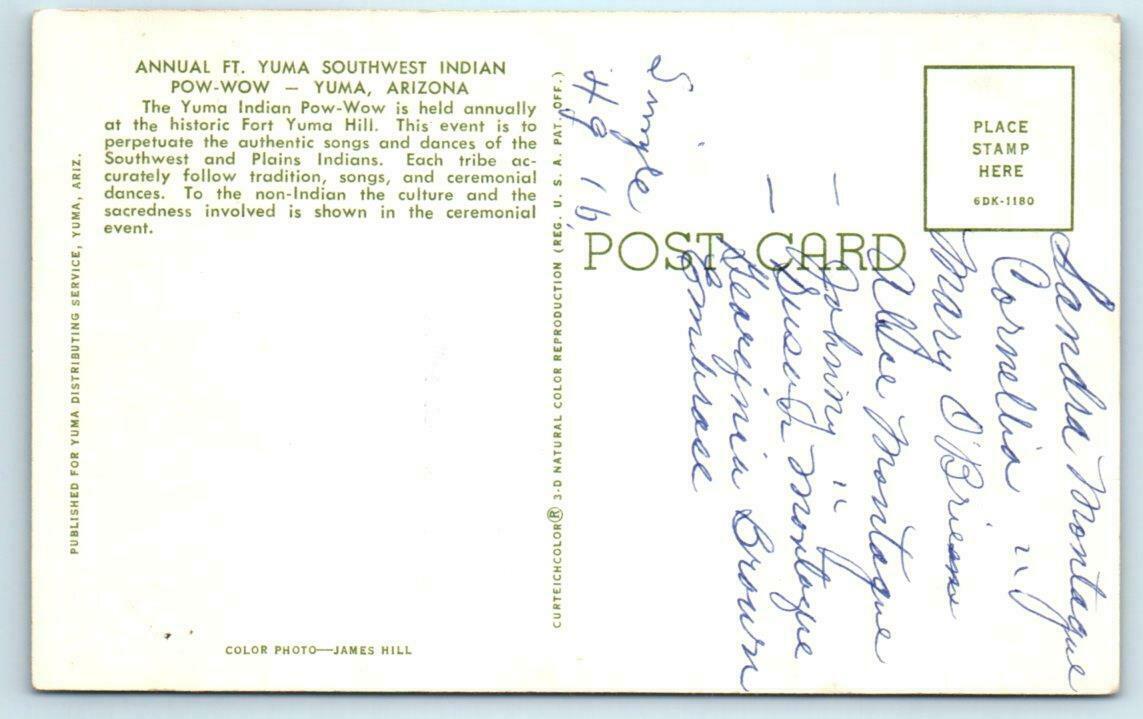 ANNUAL FT. YUMA SOUTHWEST INDIAN
POW-WOW — YUMA, ARIZONA
The Yuma Indian Pow-Wow is held annually
at the historic Fort Yuma Hill. This event is to
perpetuate the authentic songs and dances of the
Southwest and Plains Indians. Each tribe ac-
curately follow tradition, songs, and ceremonial
dances. To the non-Indian the culture and the
sacredness involved is shown in the ceremonial
event.
PUBLISHED FOR YUMA DISTRIBUTING SERVICE, YUMA, ARIZ.
COLOR PHOTO—JAMES HILL
CURTEICHCOLOR® 3-D NATURAL COLOR REPRODUCTION (REG. U. S. A. PAT. OFF.)
POST CARD
PLACE
STAMP
HERE
6DK-1180
Sandra Montague
Cornellia "
Mary O'Brien
Alice Montague
Johnny "
Susan Montague
Georginia Brown